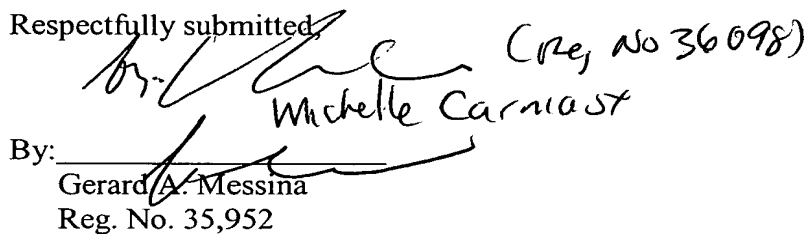 Respectfully submitted,
by: (Reg No 36098)
Michelle Carniaux
By:
Gerard A. Messina
Reg. No. 35,952